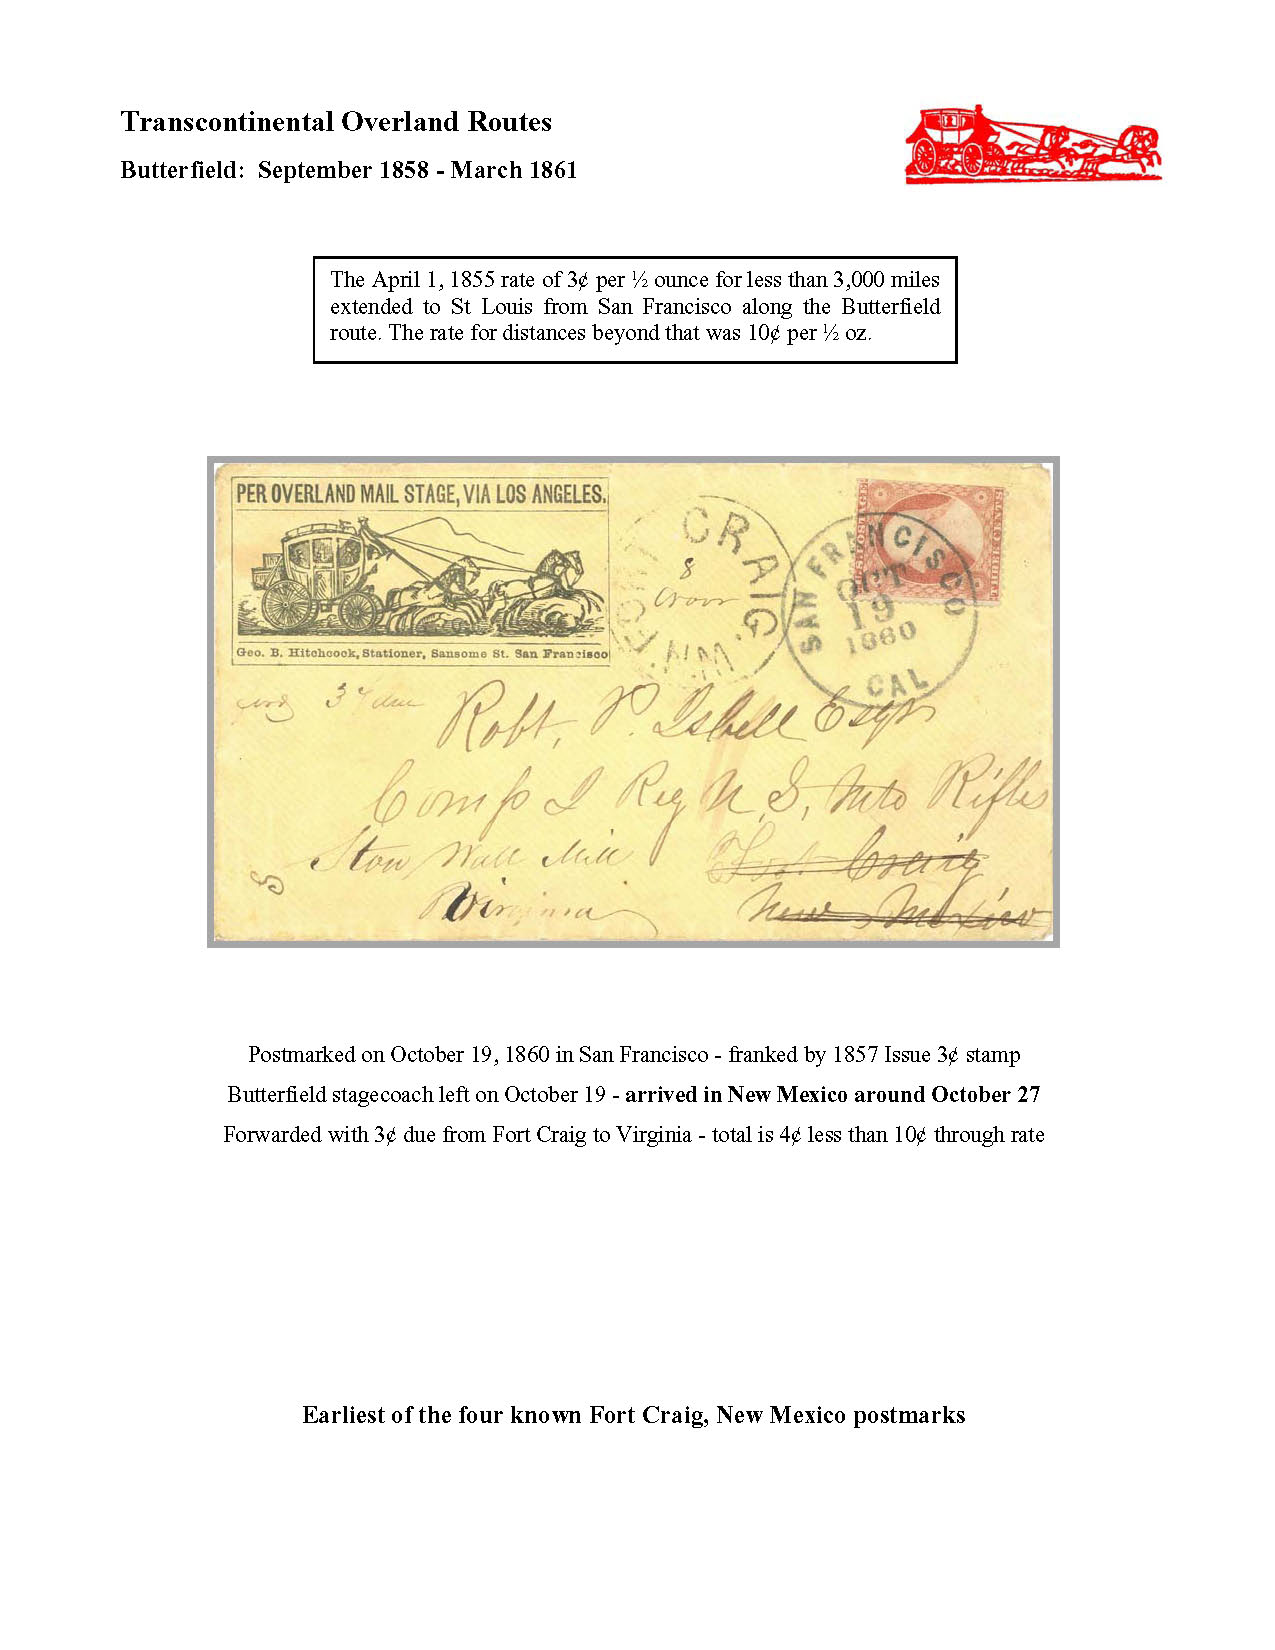 Transcontinental Overland Routes
Butterfield: September 1858 - March 1861
The April 1, 1855 rate of 3¢ per ½ ounce for less than 3,000 miles
extended to St Louis from San Francisco along the Butterfield
route. The rate for distances beyond that was 10¢ per ½ oz.
PER OVERLAND MAIL STAGE, VIA LOS ANGELES.
Geo. B. Hitchcock, Stationer, Sansome St. San Francisco
FORT CRAIG, N.M.
8
SAN FRANCISCO
OCT
19
1860
CAL
3¢ due
Robt. P. Isbell Esqr
Comp I Reg U.S, Mtd Rifles
Wall Mill Fort Craig
Virginia New Mexico
Postmarked on October 19, 1860 in San Francisco - franked by 1857 Issue 3¢ stamp
Butterfield stagecoach left on October 19 - arrived in New Mexico around October 27
Forwarded with 3¢ due from Fort Craig to Virginia - total is 4¢ less than 10¢ through rate
Earliest of the four known Fort Craig, New Mexico postmarks